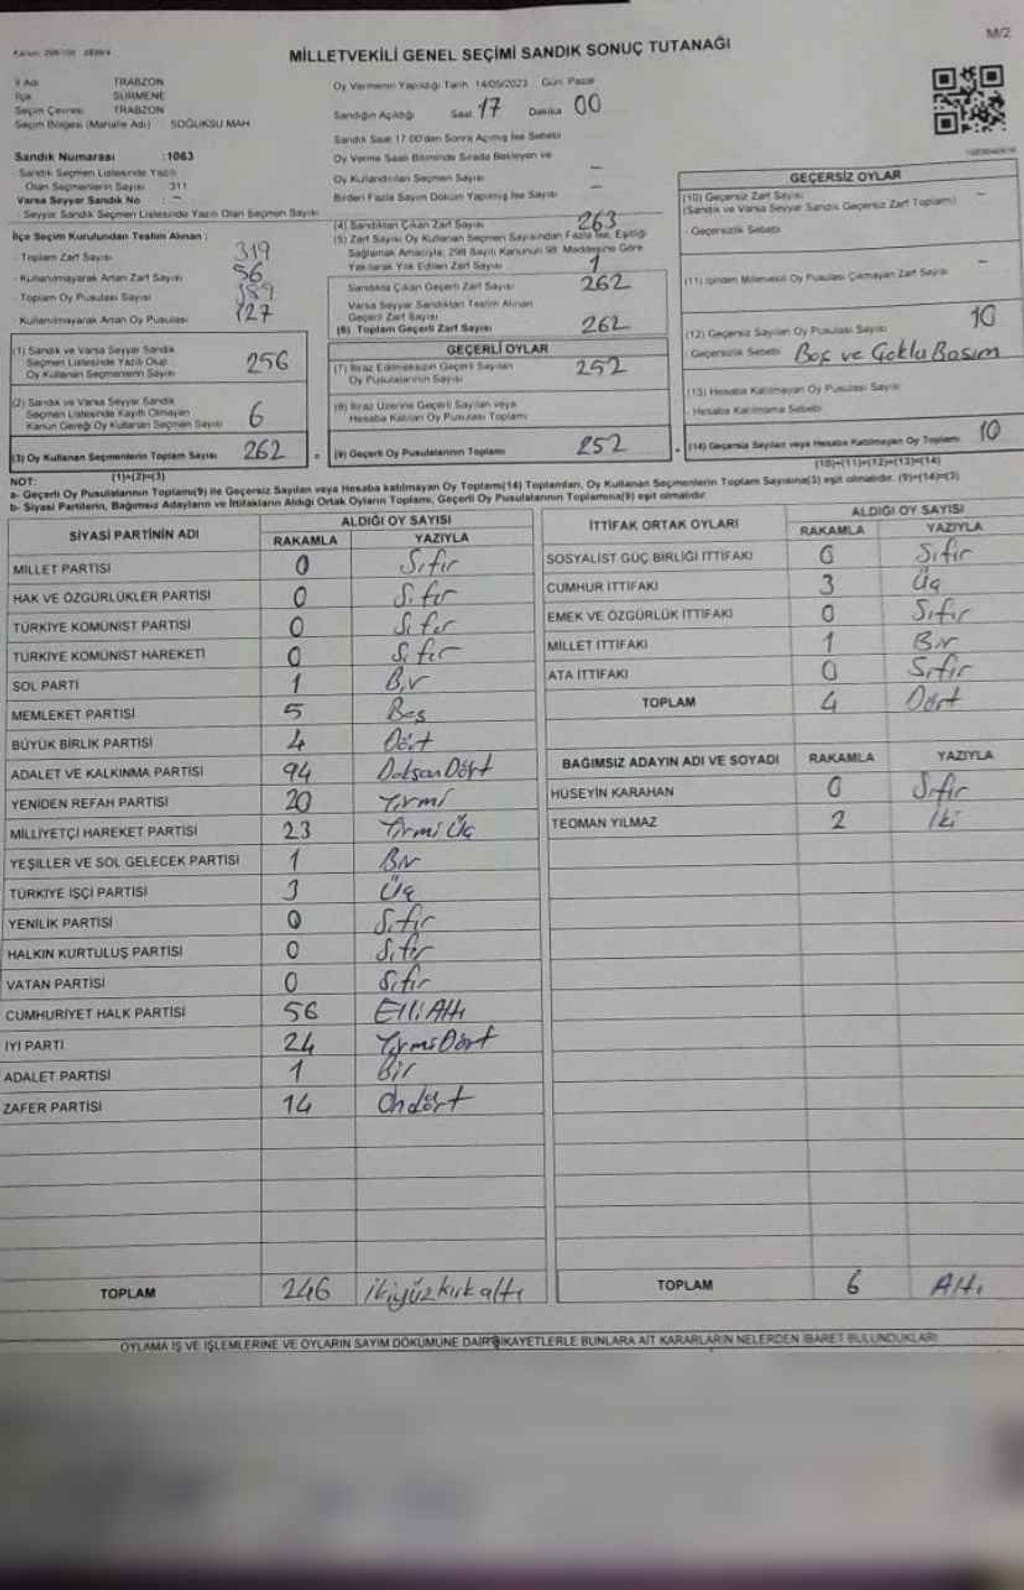 MİLLETVEKİLİ GENEL SEÇİMİ SANDIK SONUÇ TUTANAĞI
M/2
İl Adı TRABZON
İlçe SÜRMENE
Seçim Çevresi TRABZON
Seçim Bölgesi (Mahalle Adı) SOĞUKSU MAH
Oy Vermenin Yapıldığı Tarih 14/05/2023 Gün Pazar
Sandığın Açıldığı Saat 17 Dakika 00
Sandık Saat 17:00'den Sonra Açılmış İse Sebebi
Oy Verme Saati Bitiminde Sırada Bekleyen ve
Oy Kullandırılan Seçmen Sayısı –
Birden Fazla Sayım Döküm Yapılmış İse Sayısı –
Sandık Numarası :1063
Sandık Seçmen Listesinde Yazılı
Olan Seçmenlerin Sayısı 311
Varsa Seyyar Sandık No : –
Seyyar Sandık Seçmen Listesinde Yazılı Olan Seçmen Sayısı
İlçe Seçim Kurulundan Teslim Alınan :
- Toplam Zarf Sayısı 319
- Kullanılmayarak Artan Zarf Sayısı 56
- Toplam Oy Pusulası Sayısı 389
- Kullanılmayarak Artan Oy Pusulası 127
(1) Sandık ve Varsa Seyyar Sandık
Seçmen Listesinde Yazılı Olup
Oy Kullanan Seçmenlerin Sayısı 256
(2) Sandık ve Varsa Seyyar Sandık
Seçmen Listesinde Kayıtlı Olmayan
Kanun Gereği Oy Kullanan Seçmen Sayısı 6
(3) Oy Kullanan Seçmenlerin Toplam Sayısı 262
(1)+(2)=(3)
(4) Sandıktan Çıkan Zarf Sayısı 263
(5) Zarf Sayısı Oy Kullanan Seçmen Sayısından Fazla İse, Eşitliği
Sağlamak Amacıyla, 298 Sayılı Kanunun 98. Maddesine Göre
Yakılarak Yok Edilen Zarf Sayısı 1
Sandıkta Çıkan Geçerli Zarf Sayısı 262
Varsa Seyyar Sandıktan Teslim Alınan
Geçerli Zarf Sayısı
(6) Toplam Geçerli Zarf Sayısı 262
GEÇERLİ OYLAR
(7) İtiraz Edilmeksizin Geçerli Sayılan
Oy Pusulalarının Sayısı 252
(8) İtiraz Üzerine Geçerli Sayılan veya
Hesaba Katılan Oy Pusulası Toplamı
(9) Geçerli Oy Pusulalarının Toplamı 252
GEÇERSİZ OYLAR
(10) Geçersiz Zarf Sayısı –
(Sandık ve Varsa Seyyar Sandık Geçersiz Zarf Toplamı)
- Geçersizlik Sebebi
(11) İçinden Milletvekili Oy Pusulası Çıkmayan Zarf Sayısı –
(12) Geçersiz Sayılan Oy Pusulası Sayısı 10
- Geçersizlik Sebebi Boş ve Çoklu Basım
(13) Hesaba Katılmayan Oy Pusulası Sayısı
- Hesaba Katılmama Sebebi
(14) Geçersiz Sayılan veya Hesaba Katılmayan Oy Toplamı 10
(10)+(11)+(12)+(13)=(14)
NOT:
a- Geçerli Oy Pusulalarının Toplamı(9) ile Geçersiz Sayılan veya Hesaba katılmayan Oy Toplamı(14) Toplamları, Oy Kullanan Seçmenlerin Toplam Sayısına(3) eşit olmalıdır. (9)+(14)=(3)
b- Siyasi Partilerin, Bağımsız Adayların ve İttifakların Aldığı Ortak Oyların Toplamı, Geçerli Oy Pusulalarının Toplamına(9) eşit olmalıdır
SİYASİ PARTİNİN ADI ALDIĞI OY SAYISI
RAKAMLA YAZIYLA
MİLLET PARTİSİ 0 Sıfır
HAK VE ÖZGÜRLÜKLER PARTİSİ 0 Sıfır
TÜRKİYE KOMÜNİST PARTİSİ 0 Sıfır
TÜRKİYE KOMÜNİST HAREKETİ 0 Sıfır
SOL PARTİ 1 Bir
MEMLEKET PARTİSİ 5 Beş
BÜYÜK BİRLİK PARTİSİ 4 Dört
ADALET VE KALKINMA PARTİSİ 94 Doksan Dört
YENİDEN REFAH PARTİSİ 20 Yirmi
MİLLİYETÇİ HAREKET PARTİSİ 23 Yirmi Üç
YEŞİLLER VE SOL GELECEK PARTİSİ 1 Bir
TÜRKİYE İŞÇİ PARTİSİ 3 Üç
YENİLİK PARTİSİ 0 Sıfır
HALKIN KURTULUŞ PARTİSİ 0 Sıfır
VATAN PARTİSİ 0 Sıfır
CUMHURİYET HALK PARTİSİ 56 Elli Altı
İYİ PARTİ 24 Yirmi Dört
ADALET PARTİSİ 1 Bir
ZAFER PARTİSİ 14 Ondört
TOPLAM 246 ikiyüz kırk altı
İTTİFAK ORTAK OYLARI ALDIĞI OY SAYISI
RAKAMLA YAZIYLA
SOSYALİST GÜÇ BİRLİĞİ İTTİFAKI 0 Sıfır
CUMHUR İTTİFAKI 3 Üç
EMEK VE ÖZGÜRLÜK İTTİFAKI 0 Sıfır
MİLLET İTTİFAKI 1 Bir
ATA İTTİFAKI 0 Sıfır
TOPLAM 4 Dört
BAĞIMSIZ ADAYIN ADI VE SOYADI RAKAMLA YAZIYLA
HÜSEYİN KARAHAN 0 Sıfır
TEOMAN YILMAZ 2 İki
TOPLAM 6 Altı
OYLAMA İŞ VE İŞLEMLERİNE VE OYLARIN SAYIM DÖKÜMÜNE DAİR ŞİKAYETLERLE BUNLARA AİT KARARLARIN NELERDEN İBARET BULUNDUKLARI